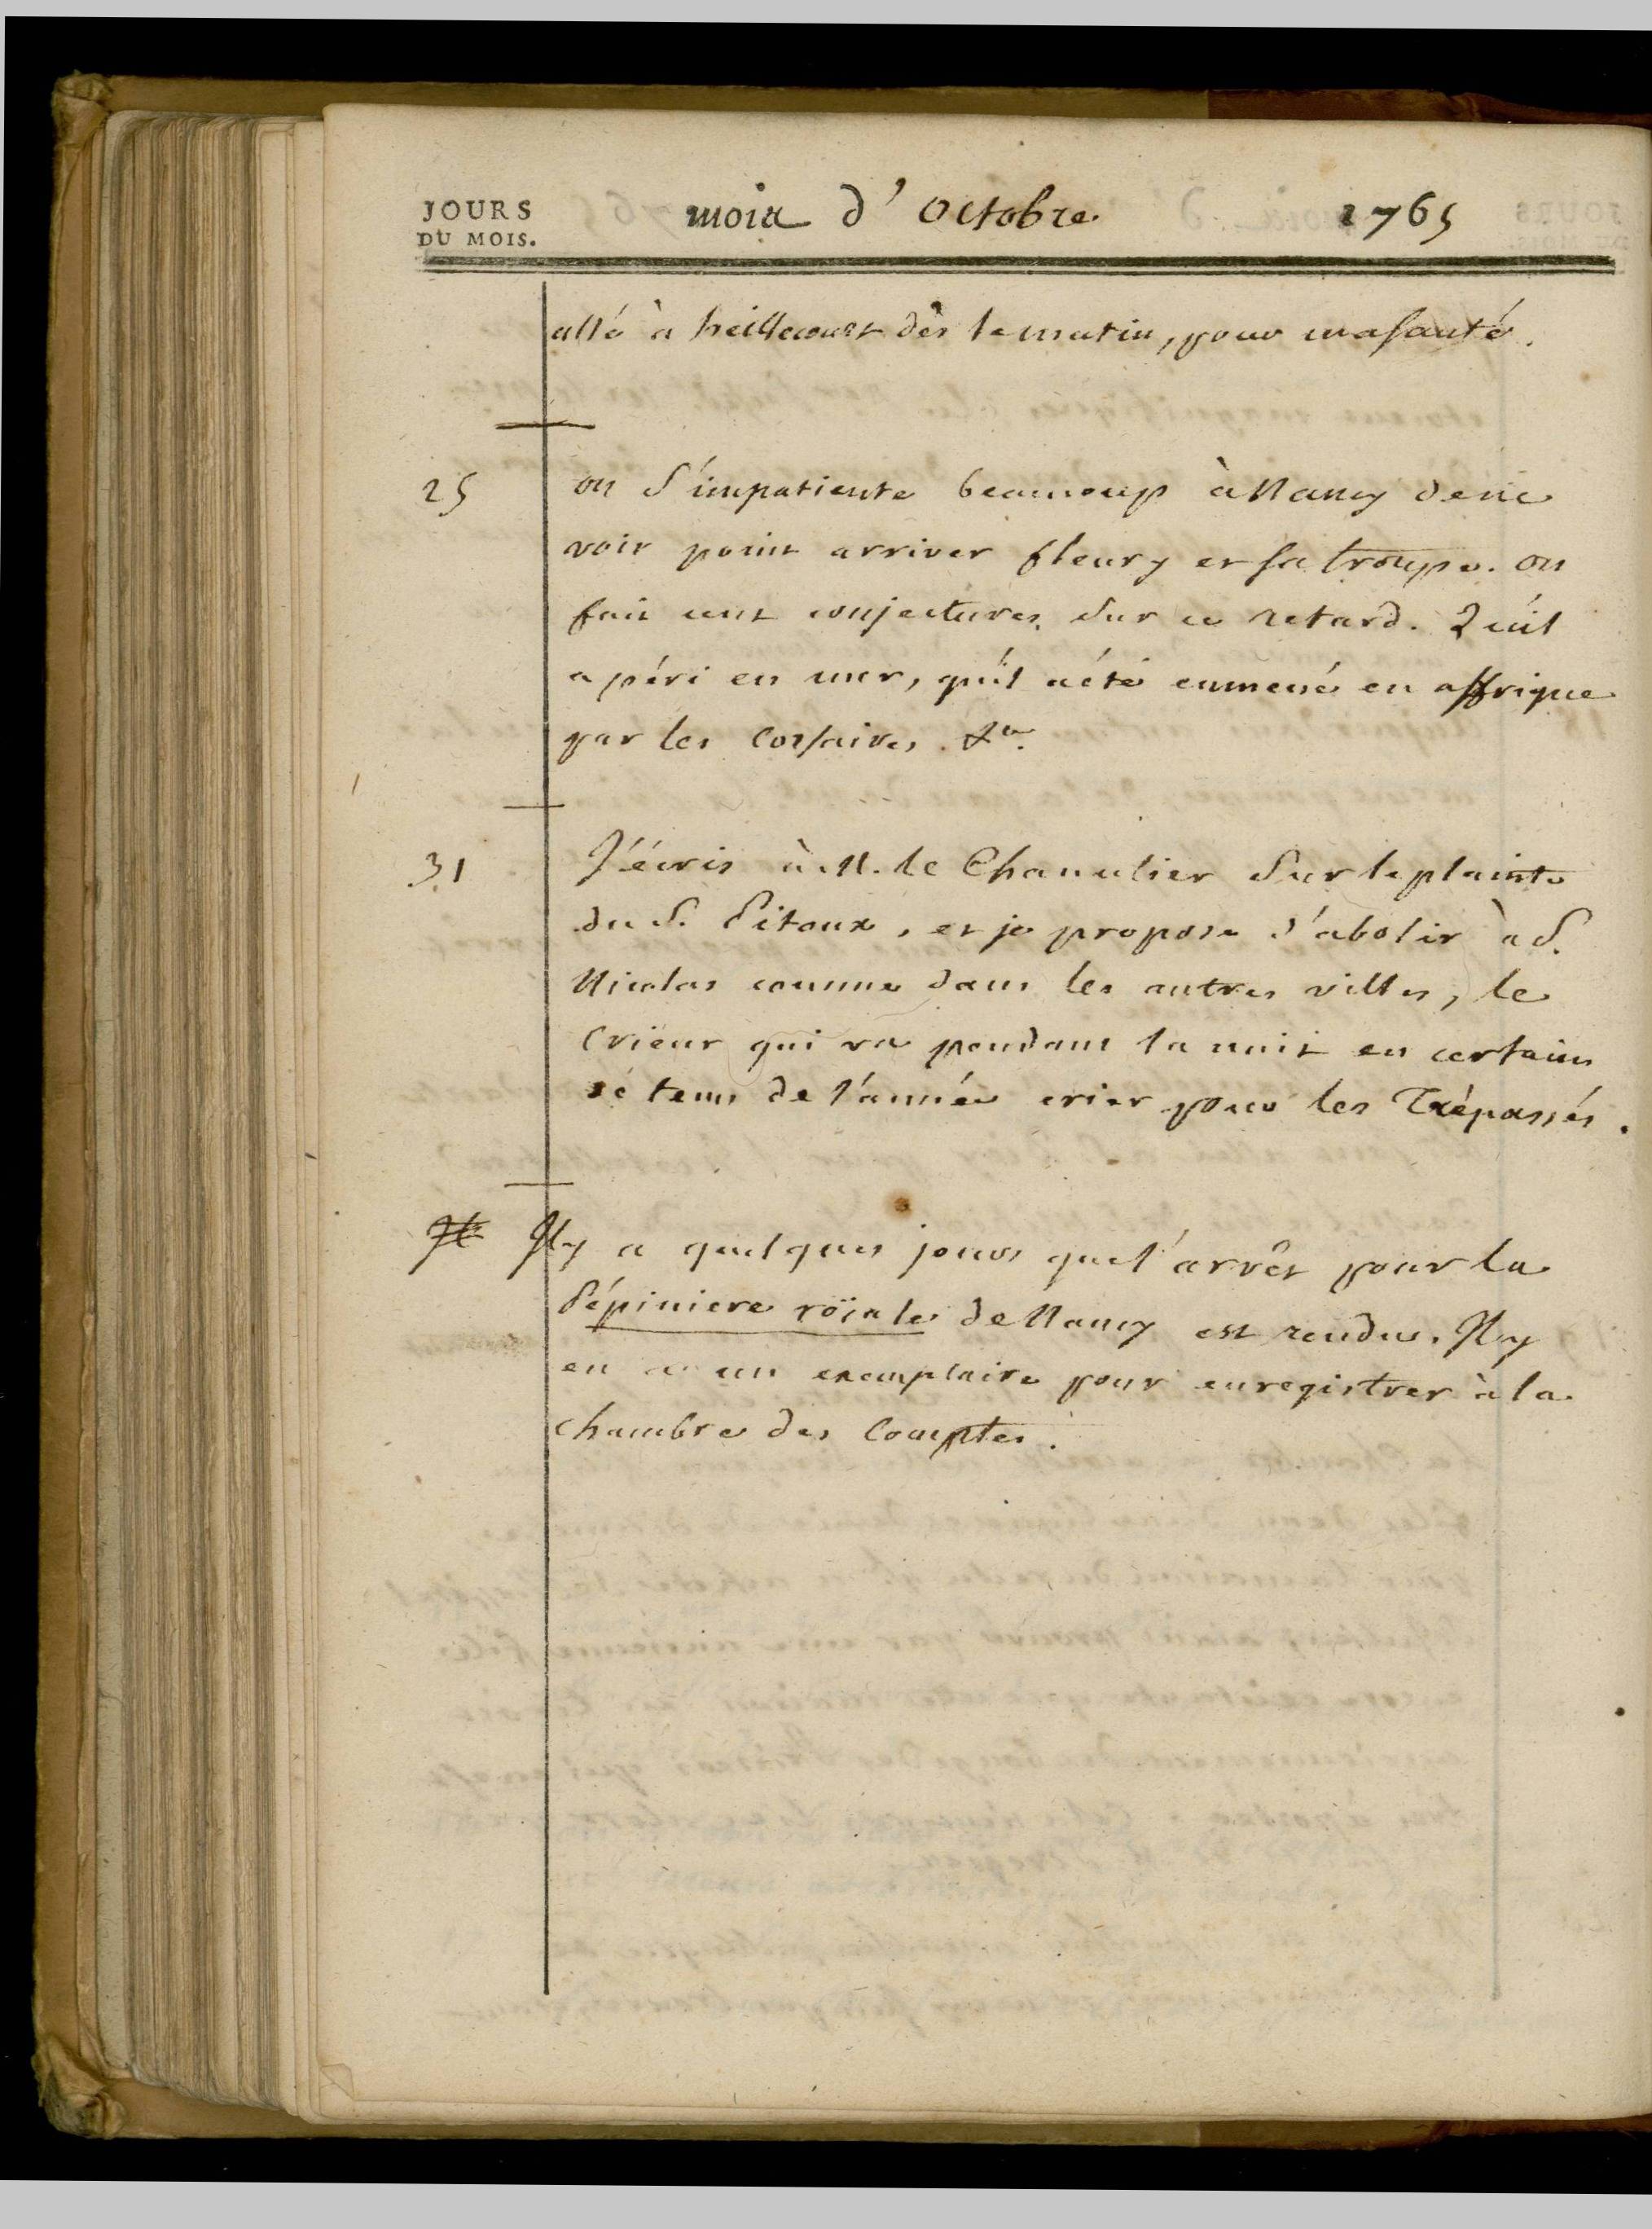 JOURS
DU MOIS.
mois d'Octobre
1765
allé à heillecourt dès le matin, pour ma santé.
25 on s'impatiente beaucoup à Nancy de ne
voir point arriver fleury et sa troupe. on
fait cent conjectures sur ce retard. Qu'il
a péri en mer, qu'il a été emmené en affrique
par les corsaires &c.
31 J'écris à M. le Chancelier sur la plainte
du S. Pitoux, et je propose d'abolir à S.
Nicolas comme dans les autres villes, le
crieur qui va pendant la nuit en certains
tems de l'année crier pour les Trépassés.
Il Il y a quelques jours que l'arrêt pour la
Pépiniere roïale de Nancy est rendu. Il y
en a un exemplaire pour enregistrer à la
chambre des Comptes.